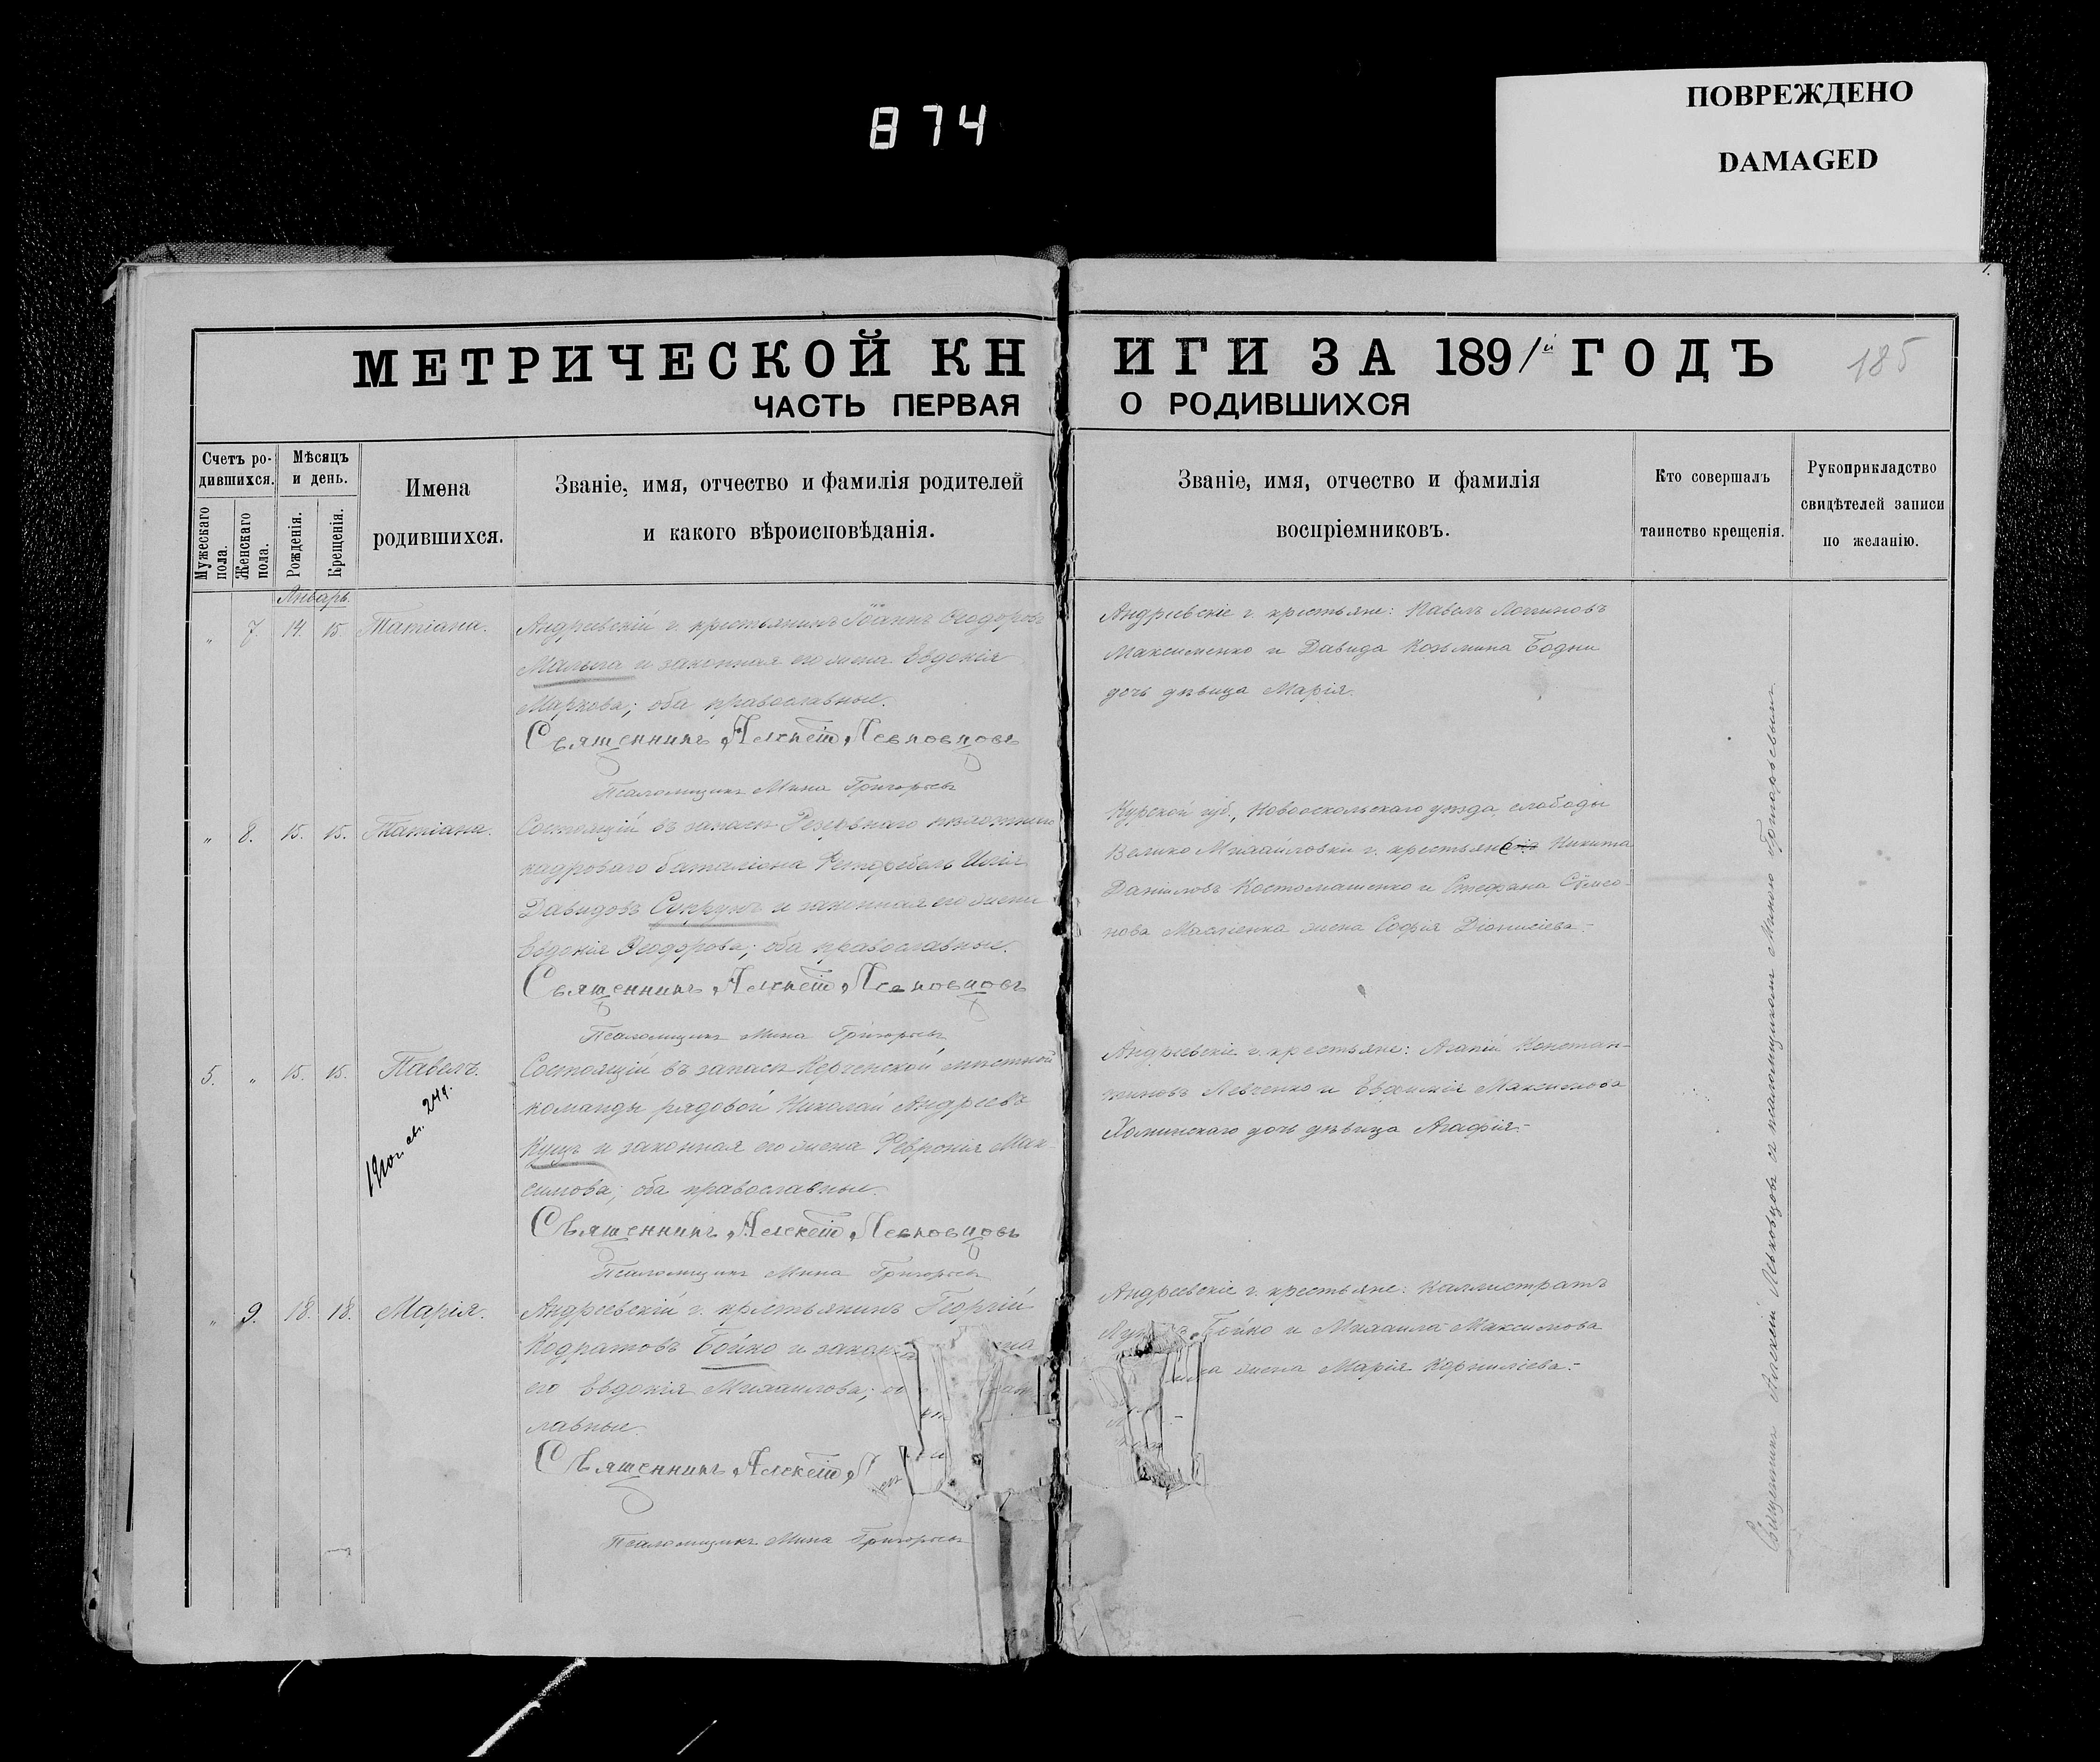 874
ПОВРЕЖДЕНО
DAMAGED
МЕТРИЧЕСКОЙ КНИГИ ЗА 1891й ГОДЪ
185
ЧАСТЬ ПЕРВАЯ О РОДИВШИХСЯ
Счетъ ро-
дившихся.
Мужескаго пола.
Женскаго пола.
Мѣсяцъ
и день.
Рожденія.
Крещенія.
Имена
родившихся.
Званіе, имя, отчество и фамилія родителей
и какого вѣроисповѣданія.
Званіе, имя, отчество и фамилія
воспріемниковъ.
Кто совершалъ
таинство крещенія.
Рукоприкладство
свидѣтелей записи
по желанію.
Январь.
" 7. 14. 15. Татіана.
Андреевскій г. крестьянинъ Іоаннъ Ѳеодоровъ
Малыга и законная его жена Евдокія
Маркова; оба православные.
Священникъ Алексѣй Левковцовъ
Псаломщикъ Мина Григорьевъ
Андреевскіе г. крестьяне: Павелъ Логиновъ
Максименко и Давида Козьмина Бодни
дочь дѣвица Марія.
" 8. 15. 15. Татіана.
Состоящій въ запасѣ Резервнаго пѣхотнаго
кадроваго баталіона Фельдфебель Илія
Давидовъ Супрунъ и законная его жена
Евдокія Ѳеодорова; оба православные.
Священникъ Алексѣй Левковцовъ
Псаломщикъ Мина Григорьевъ
Курской губ., Новооскольскаго уѣзда, слободы
Велико Михайловки г. крестьяне Никита
Даниловъ Костомашенко и Стефана Сѵмео-
нова Масліенка жена Софія Діонисіева.-
5. " 15. 15. Павелъ.
1910 г. св. 249.
Состоящій въ запасѣ Керченской мѣстной
команды рядовой Николай Андреевъ
Кущъ и законная его жена Февронія Мак-
симова; оба православные.
Священникъ Алексѣй Левковцовъ
Псаломщикъ Мина Григорьевъ
Андреевскіе г. крестьяне: Агапій Констан-
тиновъ Левченко и Евѳимія Максимова
Хоминскаго дочь дѣвица Агафія.-
" 9. 18. 18. Марія.
Андреевскій г. крестьянинъ Георгій
Кодратовъ Бойко и закон
его Евдокія Михаилова;
лавные.
Священникъ Алексѣй Л
Псаломщикъ Мина Григорьевъ
Андреевскіе г. крестьяне: Каллистратъ
Бойко и Михаила Максимова
жена Марія Корниліева.-
Священникъ Алексѣй Левковцовъ съ псаломщикомъ Миною Григорьевымъ